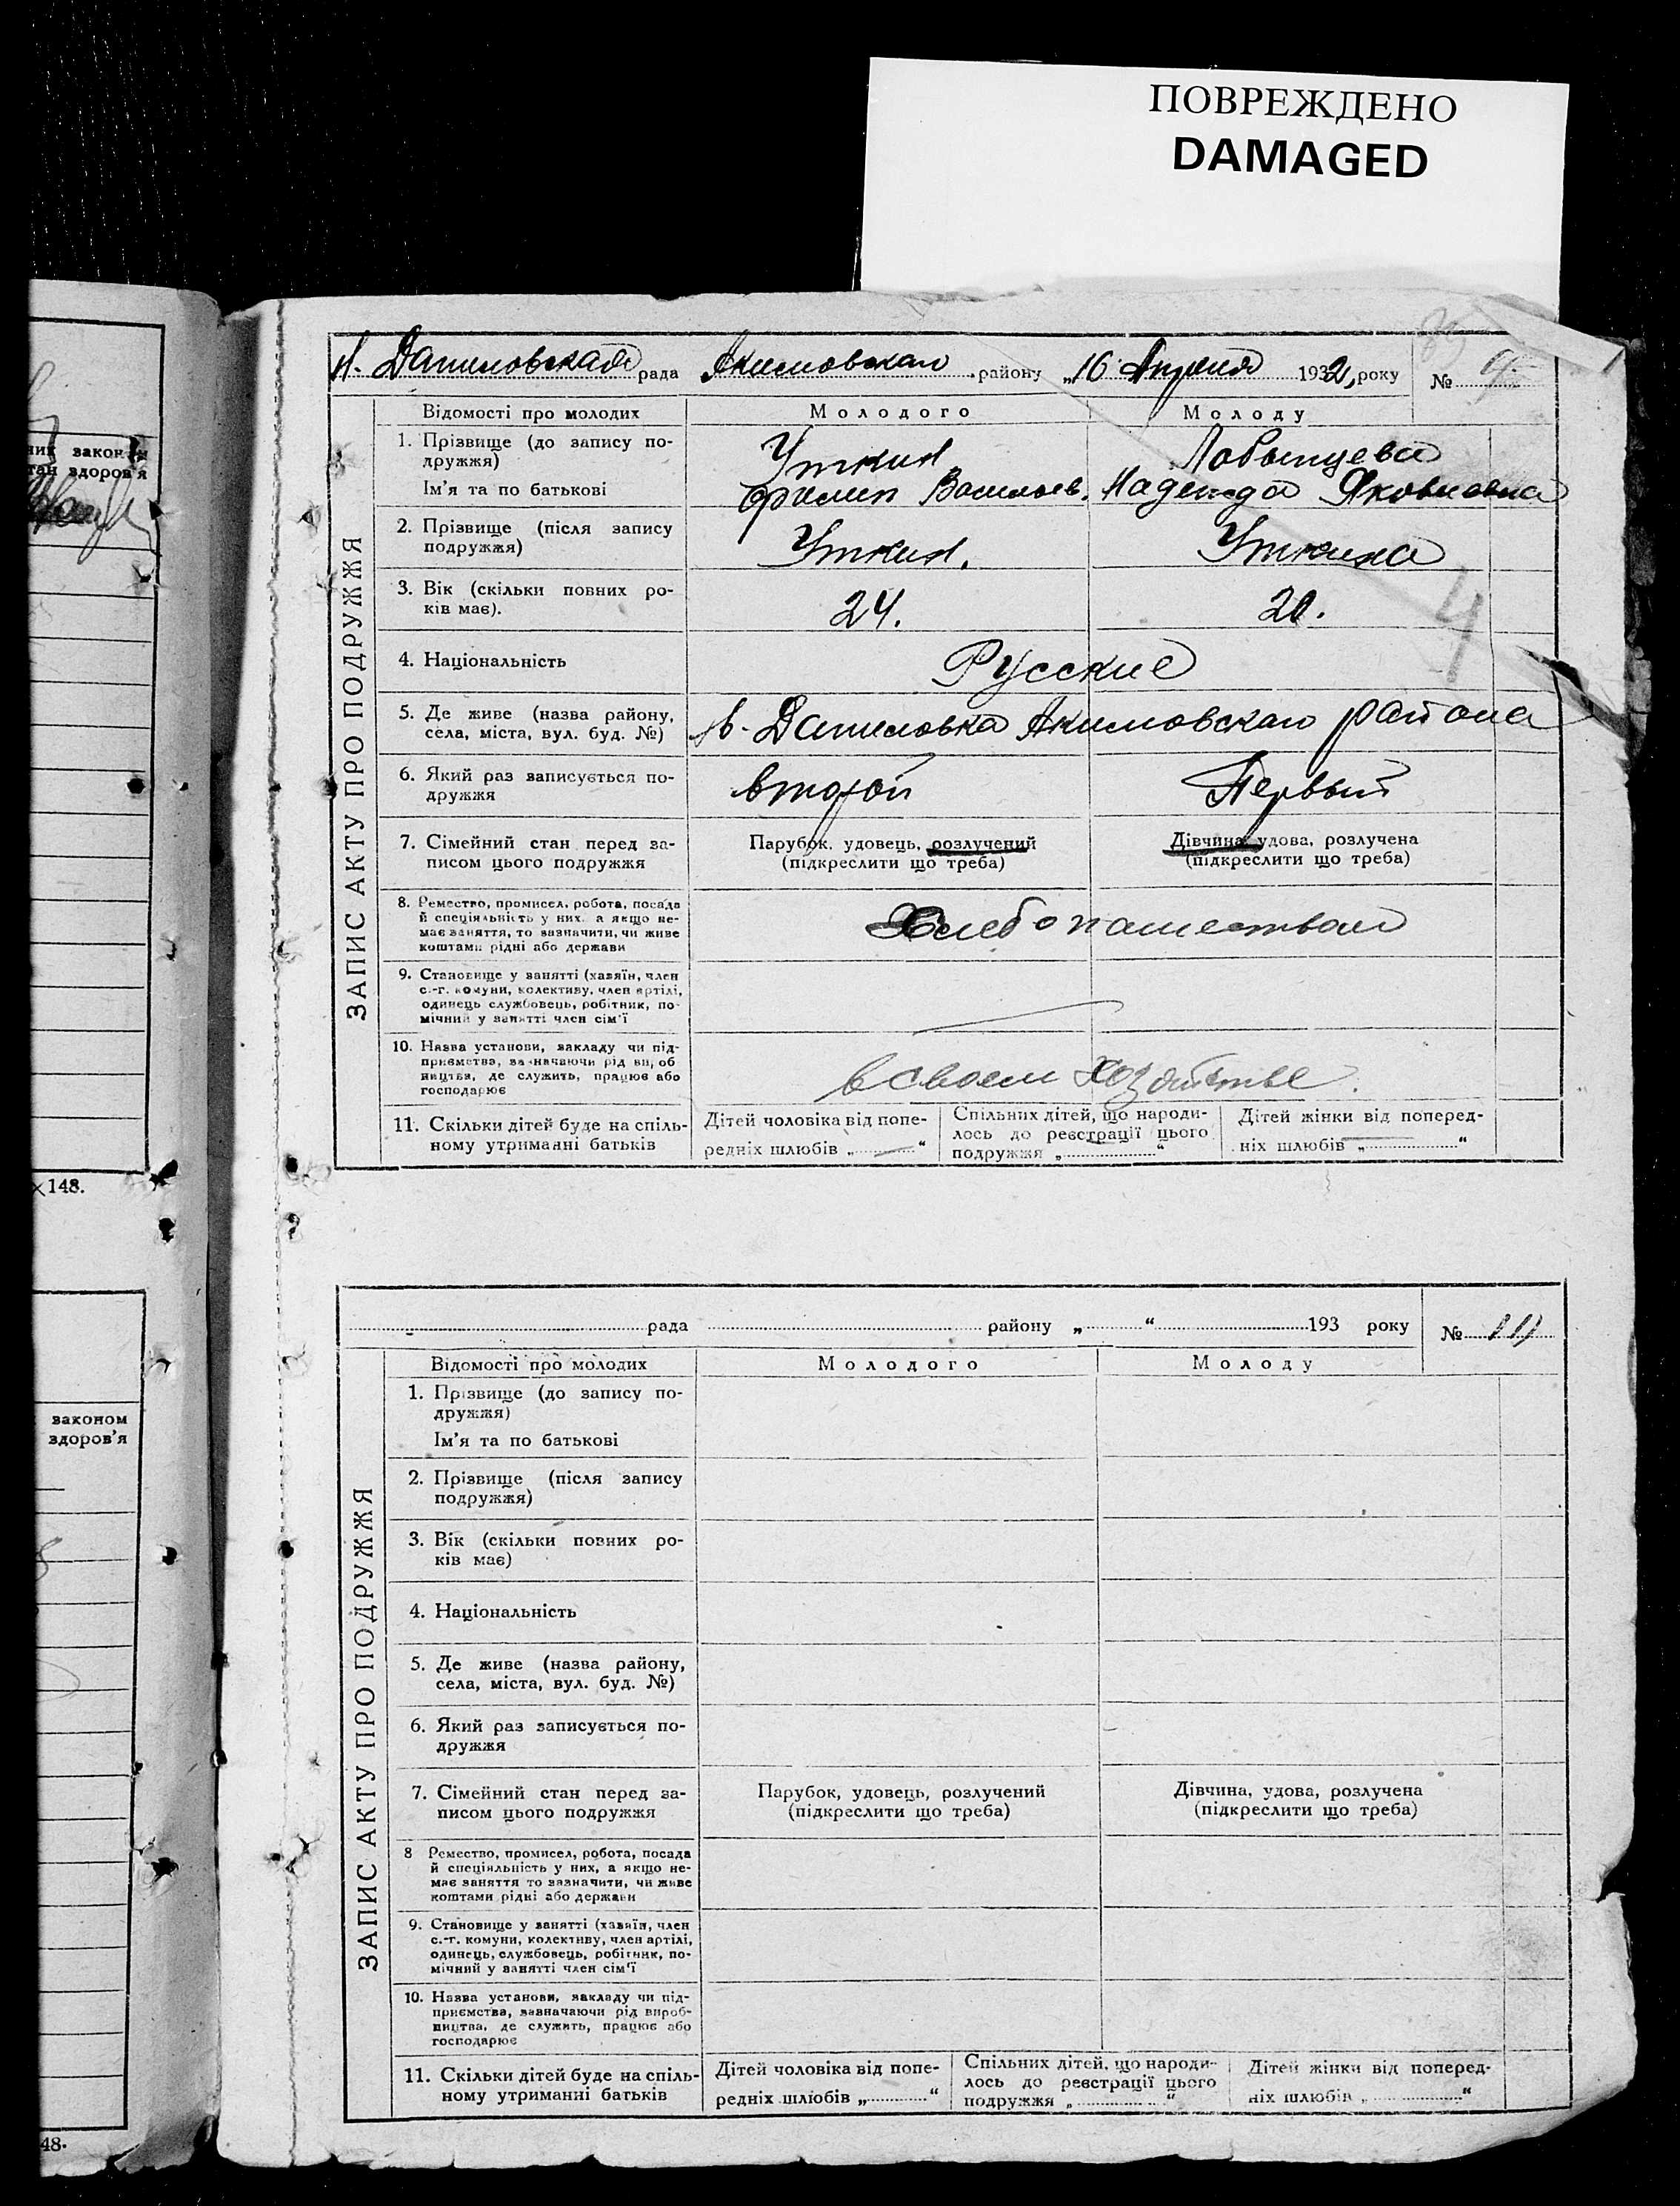 ПОВРЕЖДЕНО
DAMAGED
Н. Даниловская рада Якимовскаго району „16 Апреля 1932 року № 9
ЗАПИС АКТУ ПРО ПОДРУЖЖЯ
Відомості про молодих Молодого Молоду
1. Прізвище (до запису по-
дружжя) Уткин Лобынцева
Ім'я та по батькові Филип Васильев. Надежда Яковлевна
2. Прізвище (після запису
подружжя) Уткин. Уткина
3. Вік (скільки повних ро-
ків має). 24. 20.
4
4. Національність Русские
5. Де живе (назва району,
села, міста, вул. буд. №) Н. Даниловка Акимовскаго района
6. Який раз записується по-
дружжя второй Первый
7. Сімейний стан перед за-
писом цього подружжя
Парубок, удовець, розлучений
(підкреслити що треба)
Дівчина, удова, розлучена
(підкреслити що треба)
8. Ремество, промисел, робота, посада
й спеціяльність у них, а якщо не-
має заняття, то зазначити, чи живе
коштами рідні або держави
Хлебопашеством
9. Становище у занятті (хазяїн, член
с.-г. комуни, колективу, член артілі,
одинець службовець, робітник, по-
мічний у занятті член сім'ї
10. Назва установи, закладу чи під-
приємства, зазначаючи рід ви,об
ництва, де служить, працює або
господарює
в своем хозяйстве.
11. Скільки дітей буде на спіль-
ному утриманні батьків
Дітей чоловіка від попе-
редніх шлюбів „ “
Спільних дітей, що народи-
лось до реєстрації цього
подружжя „ “
Дітей жінки від поперед-
ніх шлюбів „ “
рада району „ “ 193 року №
ЗАПИС АКТУ ПРО ПОДРУЖЖЯ
Відомості про молодих Молодого Молоду
1. Прізвище (до запису по-
дружжя)
Ім'я та по батькові
2. Прізвище (після запису
подружжя)
3. Вік (скільки повних ро-
ків має)
4. Національність
5. Де живе (назва району,
села, міста, вул. буд. №)
6. Який раз записується по-
дружжя
7. Сімейний стан перед за-
писом цього подружжя
Парубок, удовець, розлучений
(підкреслити що треба)
Дівчина, удова, розлучена
(підкреслити що треба)
8 Ремество, промисел, робота, посада
й спеціяльність у них, а якщо не-
має заняття то зазначити, чи живе
коштами рідні або держави
9. Становище у занятті (хазяїн, член
с.-г. комуни, колективу, член артілі,
одинець, службовець, робітник, по-
мічний у занятті член сім'ї
10. Назва установи, закладу чи під-
приємства, зазначаючи рід вироб-
ництва, де служить, працює або
господарює
11. Скільки дітей буде на спіль-
ному утриманні батьків
Дітей чоловіка від попе-
редніх шлюбів „ “
Спільних дітей, що народи-
лось до реєстрації цього
подружжя „ “
Дітей жінки від поперед-
ніх шлюбів „ “
законом
здоров'я
×148.
законом
здоров'я
48.